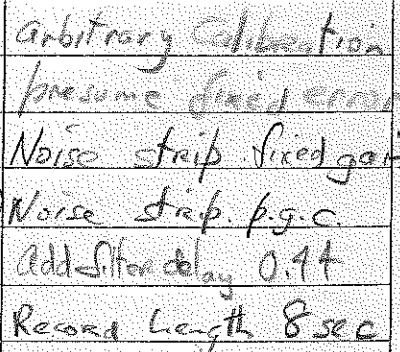 arbitrary Calibration
presume fixed error
Noise strip fixed gai
Noise strip. p.g.c.
Add filter delay 0.44
Record Length 8 sec